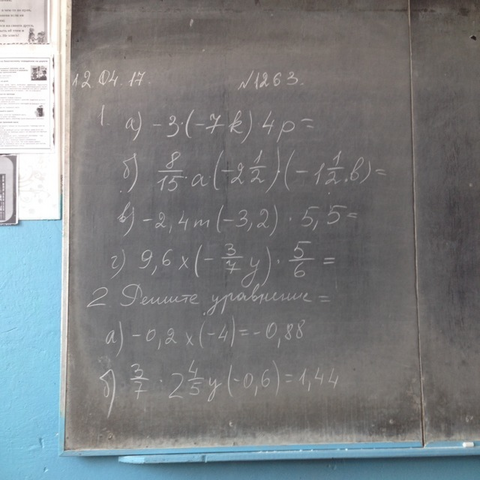 12.04.17. №1263.
1. а) -3·(-7k) 4p=
б) 8/15·a(-2 1/2)·(-1 1/2 b)=
в) -2,4m(-3,2)·5,5=
г) 9,6x(-3/7 y)·5/6=
2 Решите уравнение=
а) -0,2x(-4)=-0,88
б) 3/7·2 4/5 y(-0,6)=1,44